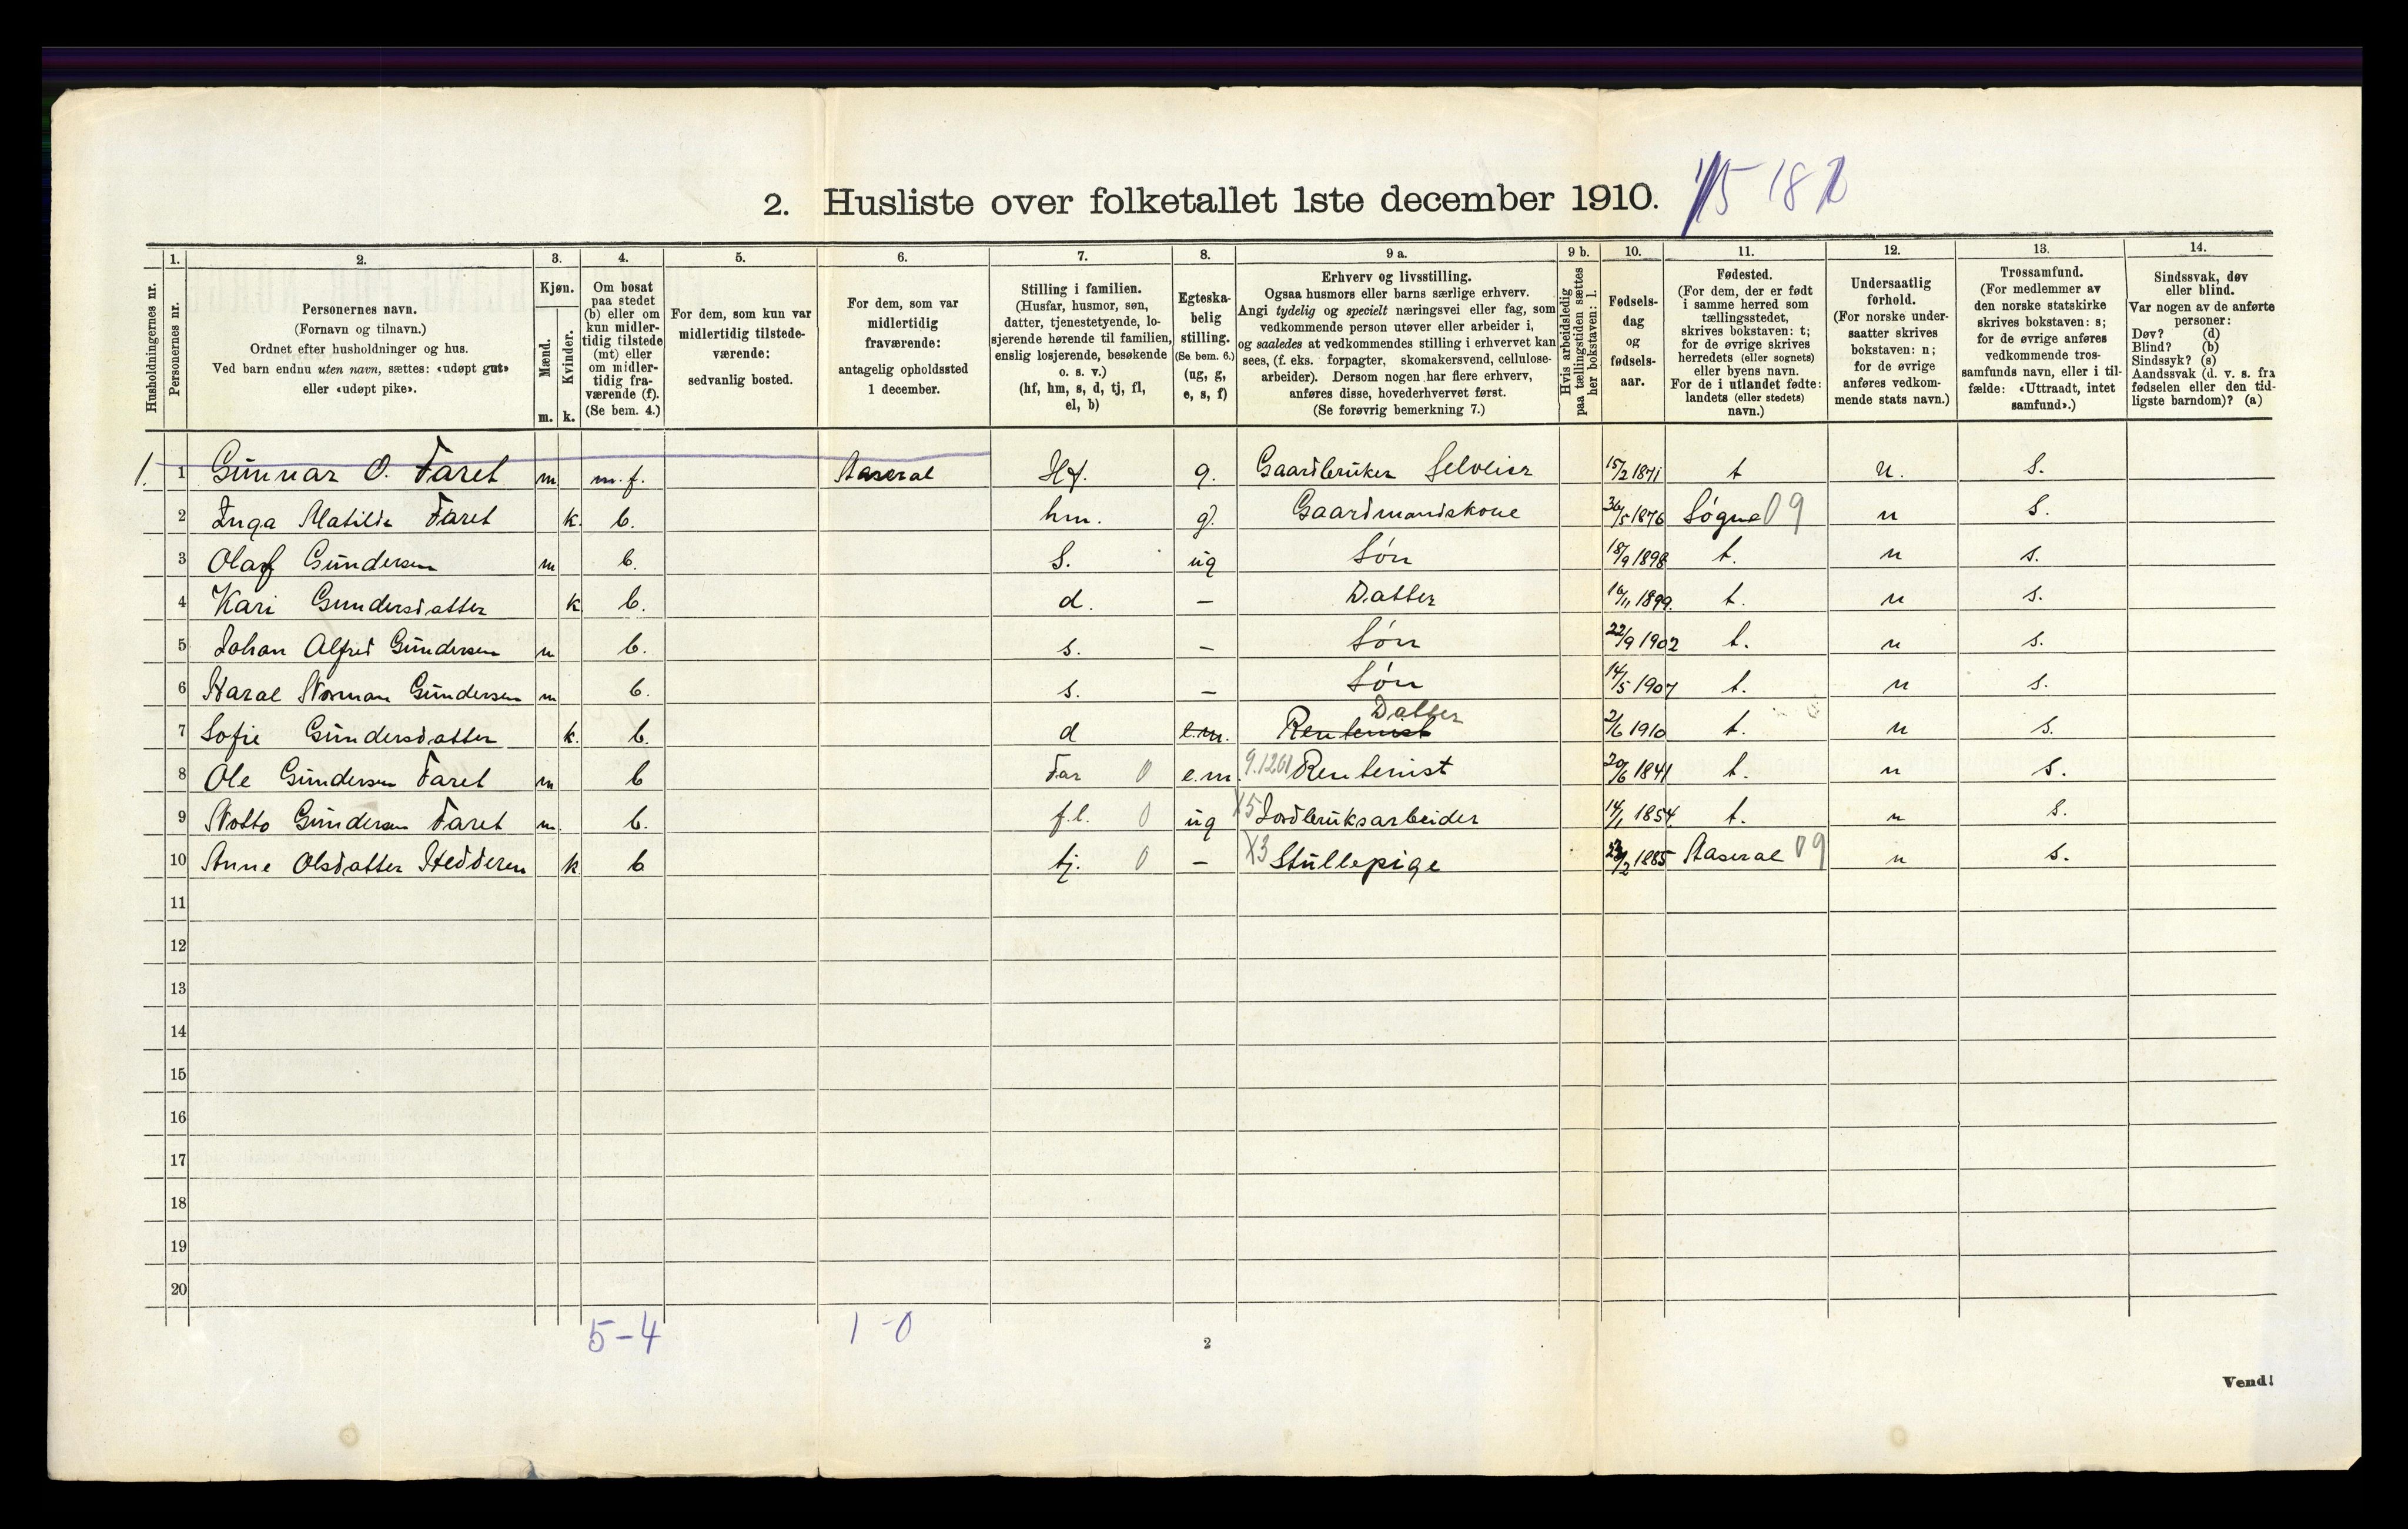 2. Husliste over folketallet 1ste december 1910.
1. 2. 3. 4. 5. 6. 7. 8. 9 a. 9 b. 10. 11. 12. 13. 14.
Husholdningernes nr.
Personernes nr.
Personernes navn.
(Fornavn og tilnavn.)
Ordnet efter husholdninger og hus.
Ved barn endnu uten navn, sættes: «udøpt gut»
eller «udøpt pike».
Kjøn.
Mænd.
m.
Kvinder.
k.
Om bosat
paa stedet
(b) eller om
kun midler-
tidig tilstede
(mt) eller
om midler-
tidig fra-
værende (f).
(Se bem. 4.)
For dem, som kun var
midlertidig tilstede-
værende:
sedvanlig bosted.
For dem, som var
midlertidig
fraværende:
antagelig opholdssted
1 december.
Stilling i familien.
(Husfar, husmor, søn,
datter, tjenestetyende, lo-
sjerende hørende til familien,
enslig losjerende, besøkende
o. s. v.)
(hf, hm, s, d, tj, fl,
el, b)
Egteska-
belig
stilling.
(Se bem. 6.)
(ug, g,
e, s, f)
Erhverv og livsstilling.
Ogsaa husmors eller barns særlige erhverv.
Angi tydelig og specielt næringsvei eller fag, som
vedkommende person utøver eller arbeider i,
og saaledes at vedkommendes stilling i erhvervet kan
sees, (f. eks. forpagter, skomakersvend, cellulose-
arbeider). Dersom nogen har flere erhverv,
anføres disse, hovederhvervet først.
(Se forøvrig bemerkning 7.)
Hvis arbeidsledig
paa tællingstiden sættes
her bokstaven: l.
Fødsels-
dag
og
fødsels-
aar.
Fødested.
(For dem, der er født
i samme herred som
tællingsstedet,
skrives bokstaven: t;
for de øvrige skrives
herredets (eller sognets)
eller byens navn.
For de i utlandet fødte:
landets (eller stedets)
navn.)
Undersaatlig
forhold.
(For norske under-
saatter skrives
bokstaven: n;
for de øvrige
anføres vedkom-
mende stats navn.)
Trossamfund.
(For medlemmer av
den norske statskirke
skrives bokstaven: s;
for de øvrige anføres
vedkommende tros-
samfunds navn, eller i til-
fælde: «Uttraadt, intet
samfund».)
Sindssvak, døv
eller blind.
Var nogen av de anførte
personer:
Døv? (d)
Blind? (b)
Sindssyk? (s)
Aandssvak (d. v. s. fra
fødselen eller den tid-
ligste barndom)? (a)
1. 1 Gunnar O. Faret m m.f. Aaseral Hf. g. Gaardbruker Selveier 15/2 1871 t n. S.
2 Inga Matilde Faret k. b. hm. g. Gaardmandskone 1876 Søgne 09 n S.
3 Olaf Gundersen m b. S. ug Søn 18/9 1898 t. n s.
4 Kari Gundersdatter k b. d. — Datter 16/11 1899. t. n s.
5 Johan Alfred Gundersen m b. s. — Søn 22/9 1902 t. n s.
6 Haral Norman Gundersen m b. s. — Søn 14/5 1907 t. n s.
7 Sofie Gundersdatter k. b. d e.m. Rentenist Datter 2/6 1910 t. n s.
8 Ole Gundersen Faret m b Far 0 e.m. 9.1201 Rentenist 20/6 1841 t. n s.
9 Notto Gundersen Faret m. b. f.l. 0 ug X5 Jordbruksarbeider 14/1 1854 t. n s.
10 Anne Olsdatter Hedderen k b tj. 0 — X3 Stullepige 1885 Aaseral 09 n s.
11
12
13
14
15
16
17
18
19
20
5-4 1-0
2
Vend!